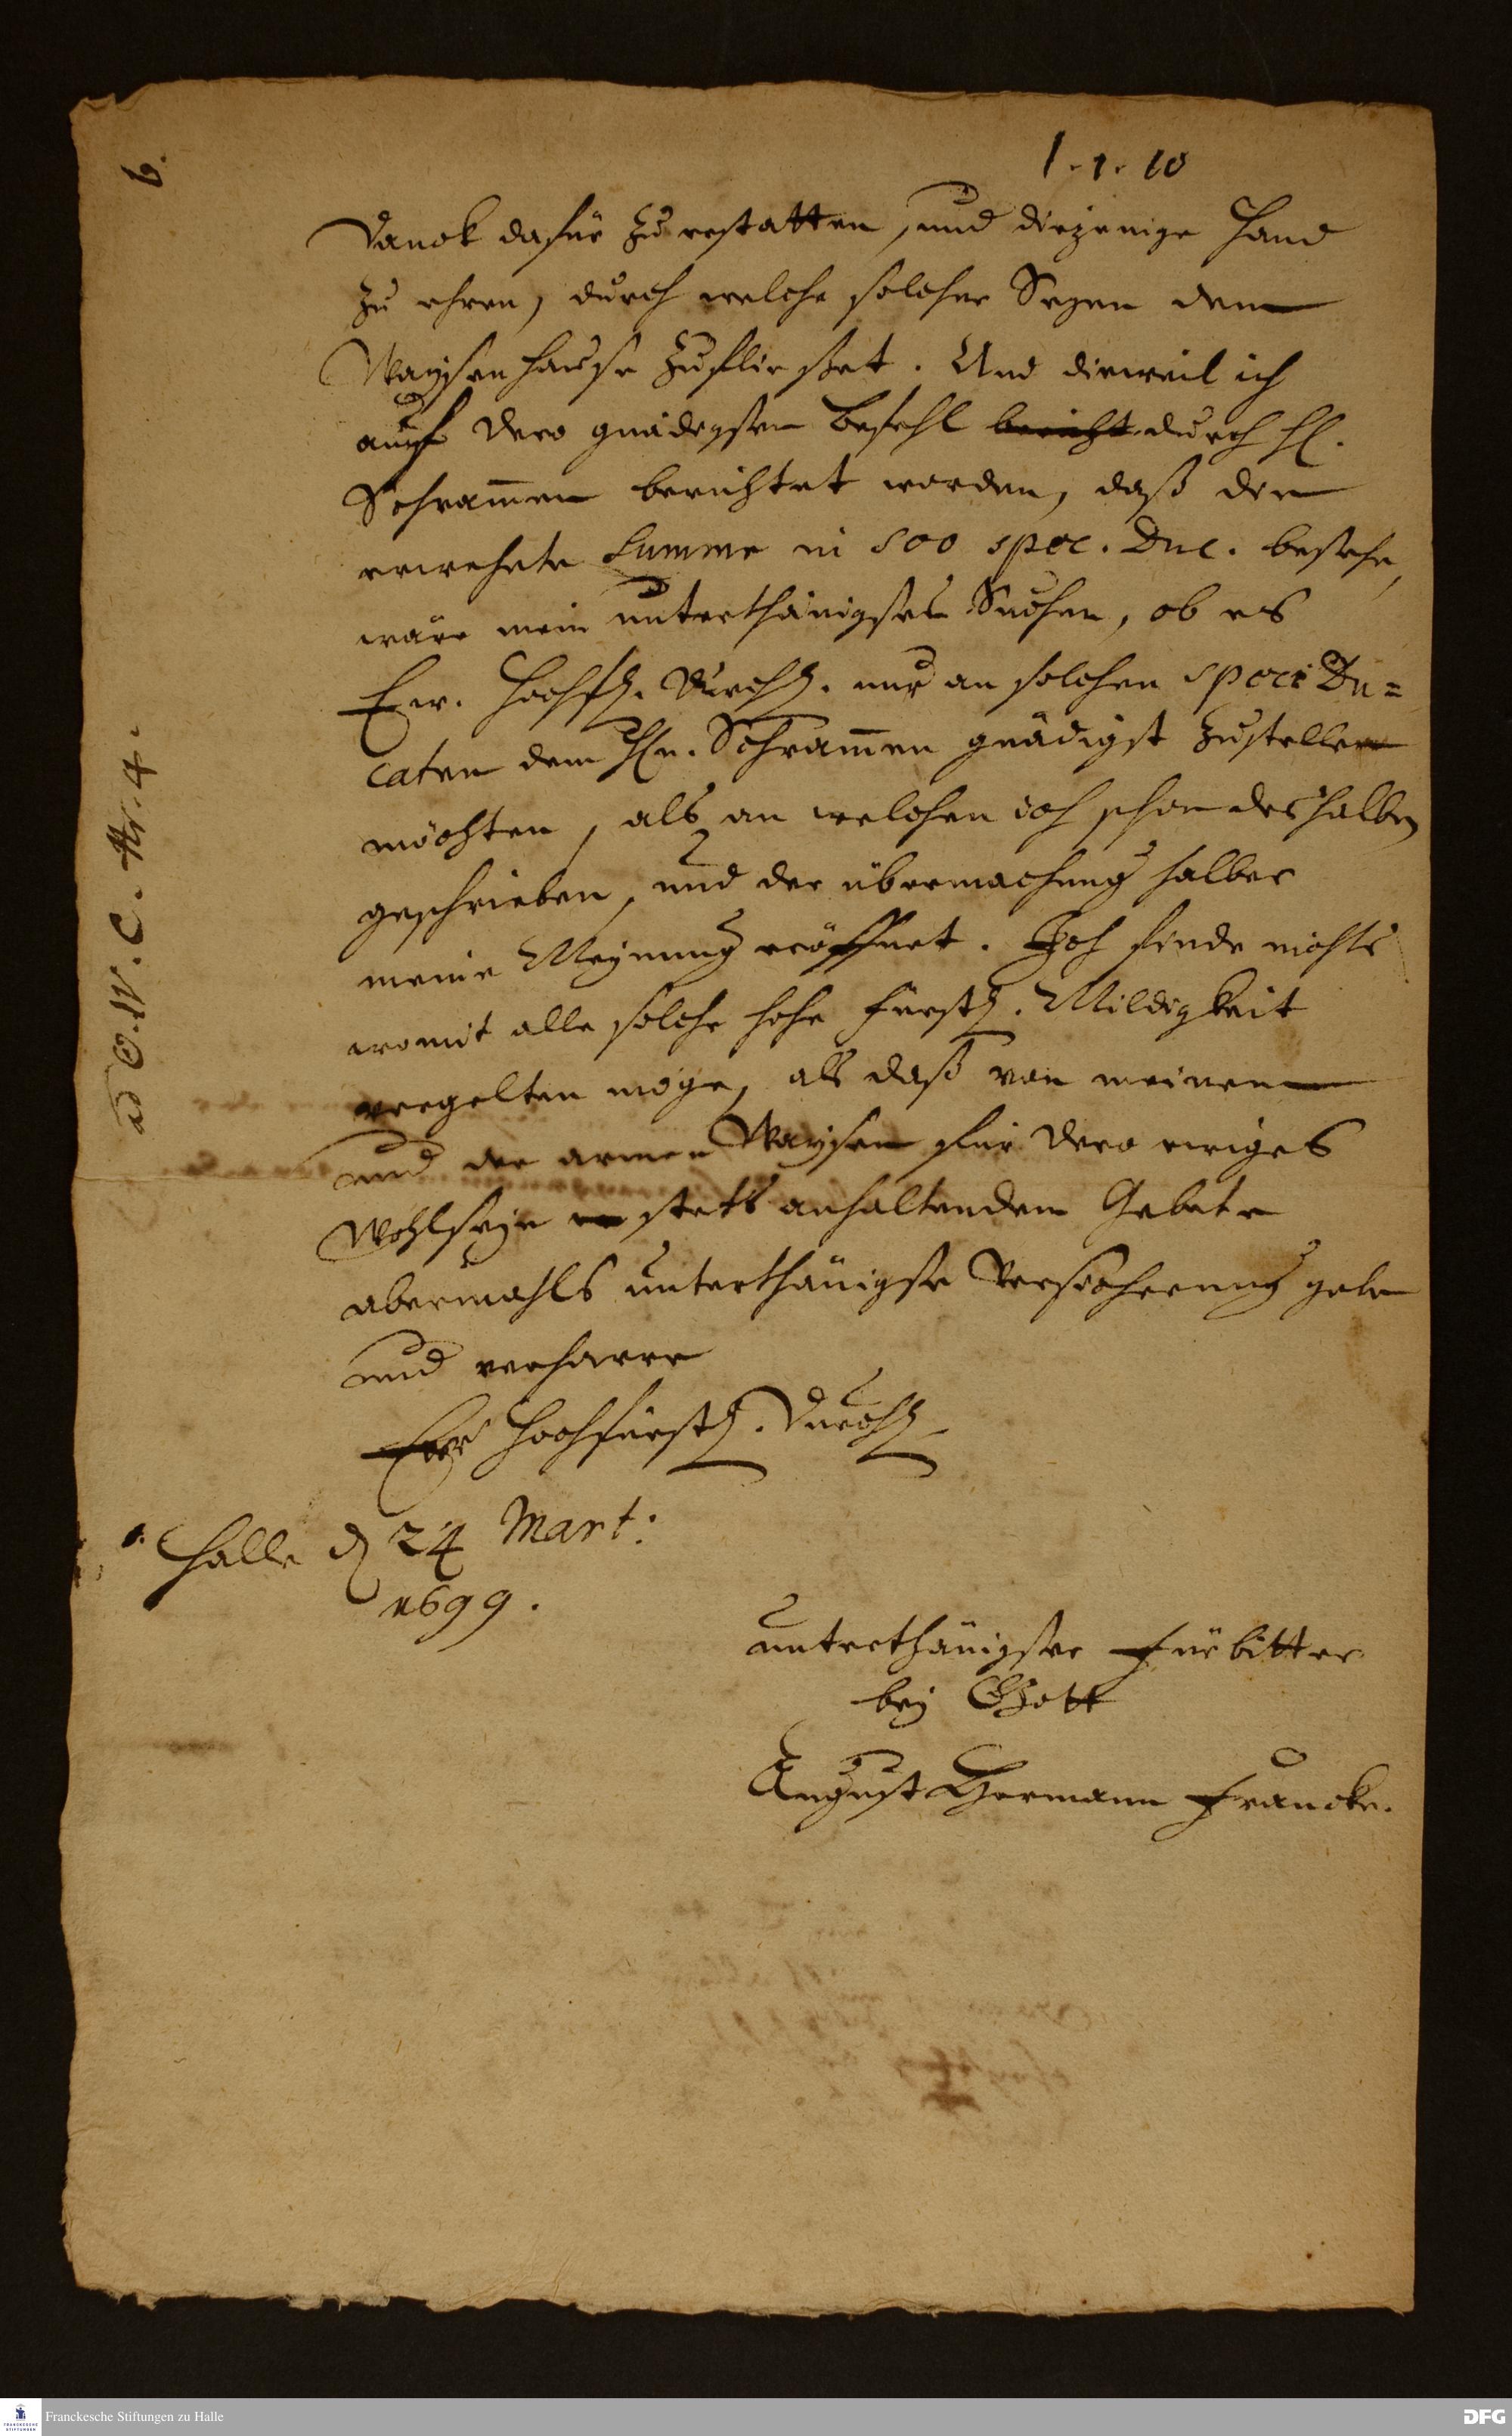 1.1.10
6.
Danck dafür zu erstatten, und diejenige Hand
zu ehren, durch welche solcher Segen dem
Waysenhause zufließet. Und dieweil ich
auf Dero gnädigsten Befehl bericht durch H.
Schram̄en berichtet worden, daß die
erwehnte Summe in 500 spec. Duc. bestehe,
wäre mein unterthänigstes Suchen, ob es
Ew. Hochf. Durchl. nur an solchen speci Du=
caten dem Hn. Schram̄en gnädigst zustellen
möchten, als an welchen ich schon deshalben
geschrieben, und der übermachung halber
meine Meynung eröffnet. Ich finde nichts
womit alle solche hohe Fürstl. Mildigkeit
vergelten möge, als daß von meinem
und der armen Waysen für Dero ewiges
Wohlseyn stets anhaltendem Gebete
abermahls unterthänigste Versicherung geben
und verharre
Ew. Hochfürstl. Durchl.
Halle d 24 Mart:
1699.
unterthänigster Fürbitter
bey Gott
August Hermann Francke.
ad O.W.C. Nr. 4.
Franckesche Stiftungen zu Halle
DFG